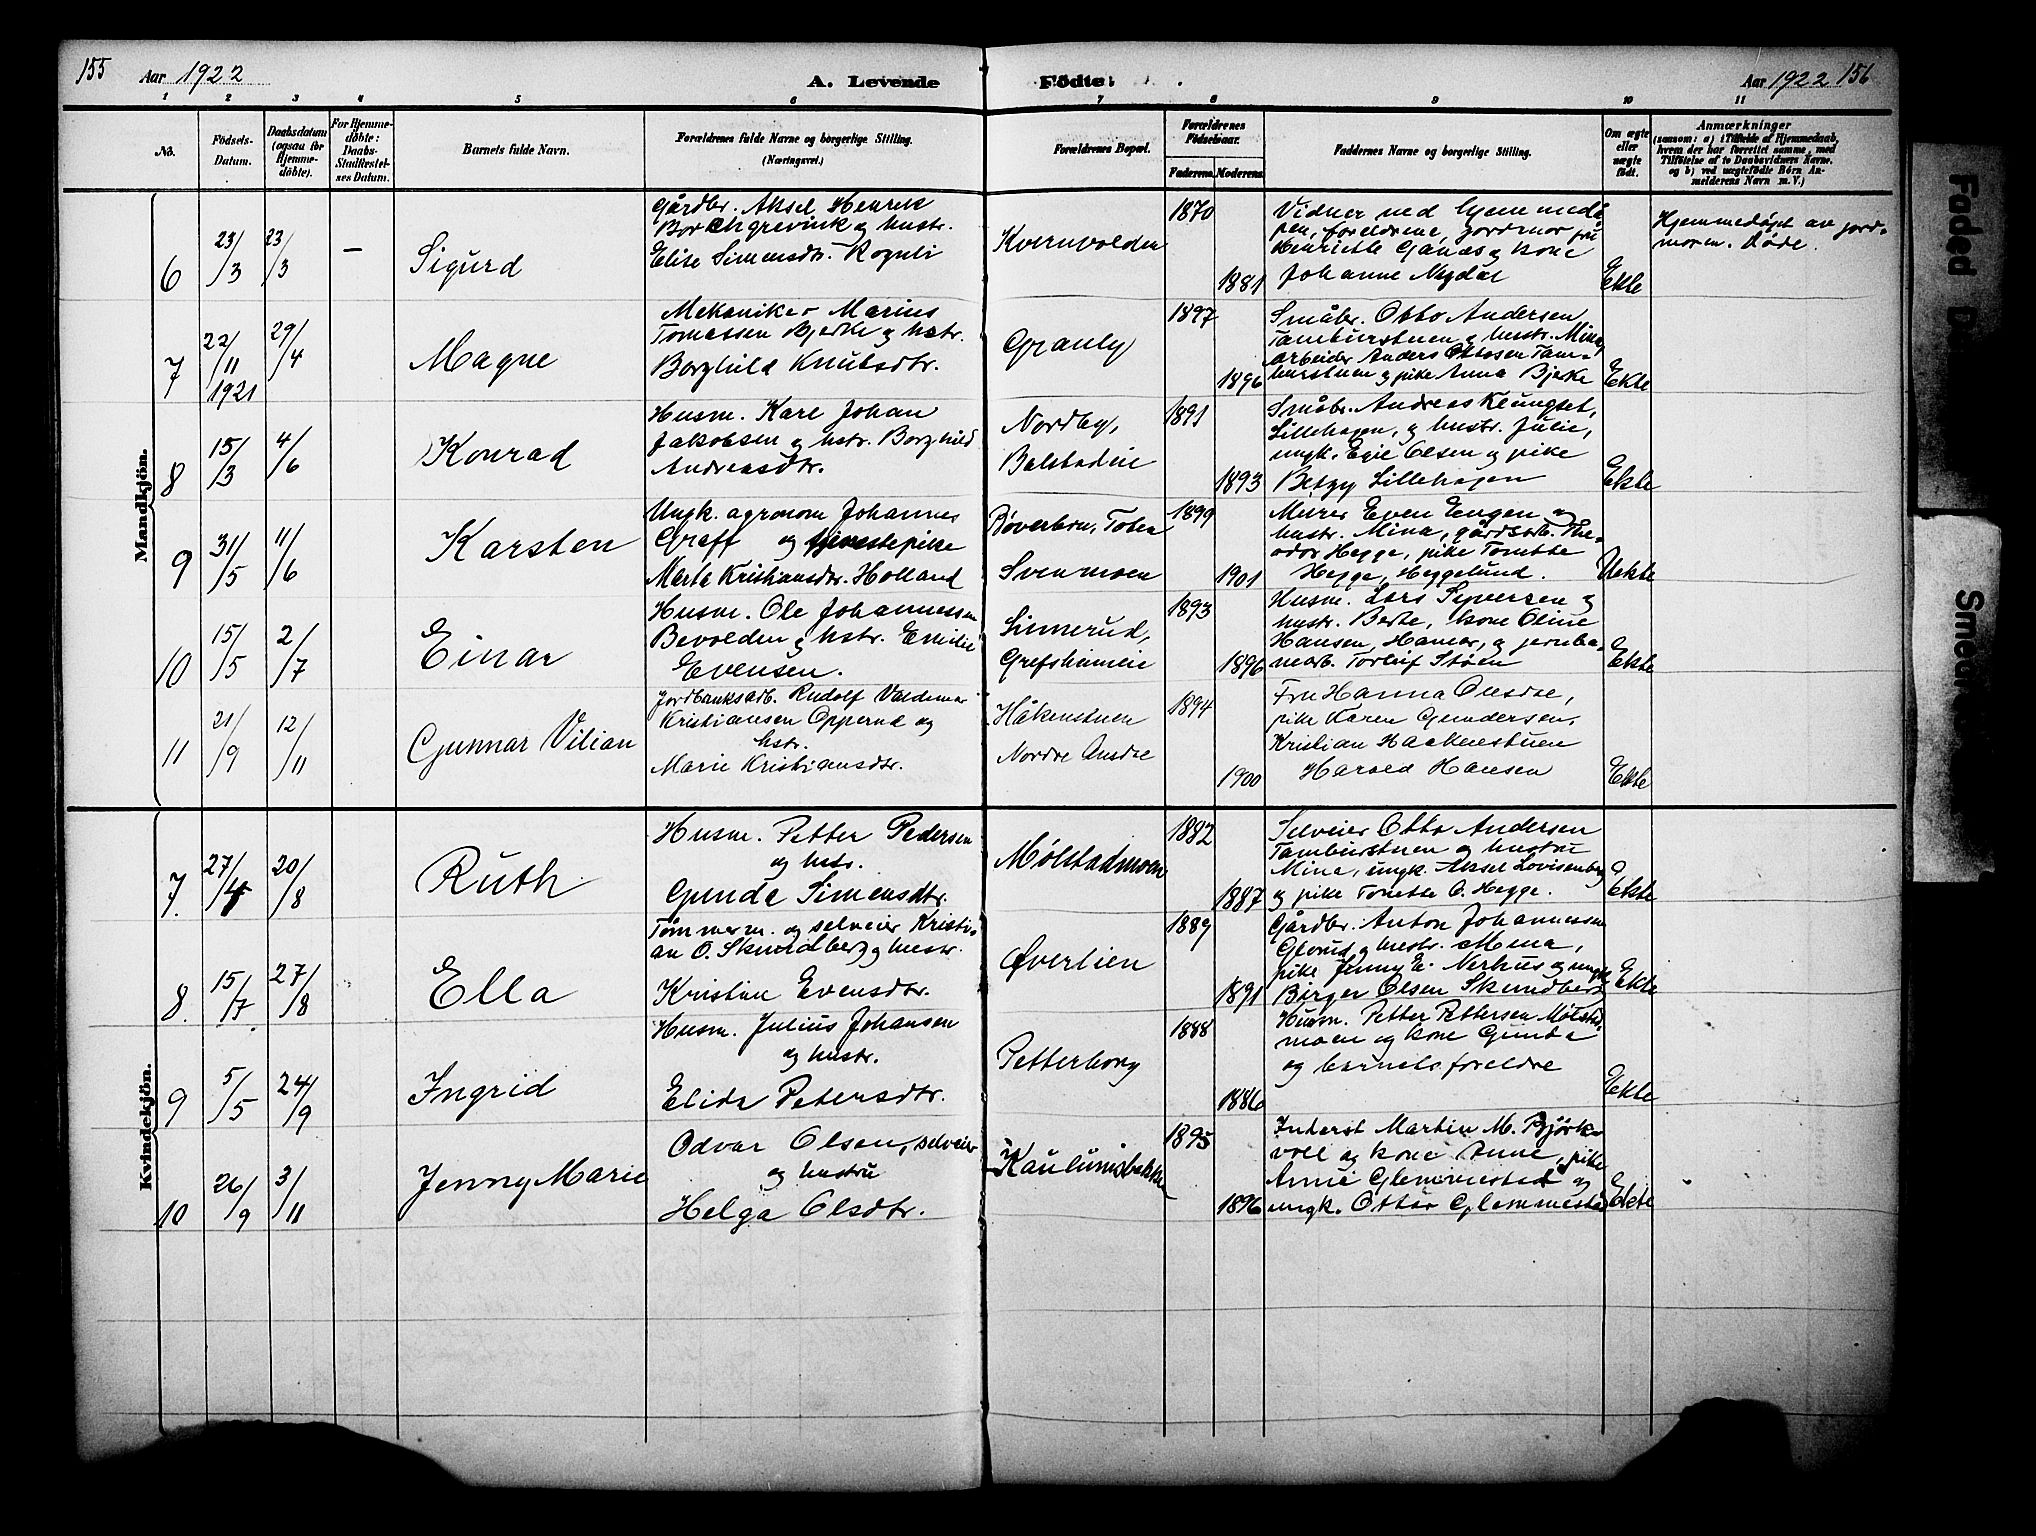 155 Aar 1922 A. Levende Födte. Aar 1922 156
1 2 3 4 5 6 7 8 9 10 11
No. Födsels-Datum. Daabsdatum (ogsaa for Hjemme-döbte). For Hjemme-döbte: Daabs-Stadfæstel-ses Datum. Barnets fulde Navn. Forældrenes fulde Navne og borgerlige Stilling. (Næringsvei.) Forældrenes Bopæl. Forældrenes Födselsaar. Faderens. Moderens. Faddernes Navne og borgerlige Stilling. Om ægte eller uægte födt. Anmærkninger
(saasom: a) i Tilfælde af Hjemmedaab,
hvem der har forrettet samme, med
Tilföielse af to Daabsvidners Navne.
og b) ved uægtefödte Börn An-
melderens Navn m. V.)
Mandkjön.
6 23/3 23/3 — Sigurd
Gårdbr. Aksel Henrik
Borchgrevink og hustr.
Elise Simensdtr. Rognli
Kvernvolden
1870
1881
Vidner ved hjemmedå-
pen, foreldrene, jordmor frk
Henriette Ganæs og kone
Johanne Nydal
Ekte
Hjemmedøpt av jord-
moren. Døde.
7 22/11 1921 29/4 Magne
Mekaniker Marius
Tomassen Bjerke og hstr.
Borghild Knutsdtr.
Granly
1897
1896
Småbr. Otto Andersen
Tamburstuen og hustr. Mina,
arbeider Anders Ottosen Tam-
burstuen og pike Anna Bjerke
Ekte
8 15/3 4/6 Konrad
Husm. Karl Johan
Jakobsen og hstr. Borghild
Andreasdtr.
Nordby,
Balstadeie
1891
1893
Småbr. Andreas Klungset,
Lillehagen, og hustr. Julie,
ungk. Egil Olsen og pike
Betzy Lillehagen
Ekte
9 31/5 11/6 Karsten
Ungk. agronom Johannes
Graff og tjenestepike
Marta Kristiansdtr. Holland
Bøverbru, Toten
Svenmoen
1899
1901
Murer Even Engen og
hustr. Mina, gårdsarb. The-
odor Hegge, pike Tomette
Hegge, Heggelund.
Uekte
10 15/5 2/7 Einar
Husm. Ole Johannessen
Bevolden og hstr. Emilie
Evensen.
Limerud,
Grefsheimeie
1893
1896
Husm. Lars Syversen og
hustr. Berte, kone Oline
Hansen, Hamar, og jernba-
nearb. Torleif Støen
Ekte
11 21/9 12/11 Gunnar Vilian
Jordbruksarb. Rudolf Valdemar
Kristiansen Opperud og
hstr.
Marie Kristiansdtr.
Håkenstuen
Nordre Ousdæ
1894
1900
Fru Hanna Ousdæ,
pike Karen Gundersen,
Kristian Haakenstuen
Harald Hansen
Ekte
Kvindekjön.
7. 27/4 20/8 Ruth
Husm. Petter Pedersen
og hstr.
Gunda Simensdtr.
Mølstadmoen
1882
1887
Selveier Otto Andersen
Tamburstuen og hustru
Mina, ungk. Aksel Lovisenberg
og pike Tonette O. Hegge.
Ekte
8. 15/7 27/8 Ella
Tømmerm. og selveier Kristi-
an O. Skundberg og hustr.
Kristine Evensdtr.
Øverlien
1889
1891
Gårdbr. Anton Johannessen
Glorud og hustr. Mina,
pike Jenny E. Nerhus og ungk.
Birger Olsen Skundberg
Ekte
9 5/5 24/9 Ingrid
Husm. Julius Johansen
og hustr.
Elida Petersdtr.
Petterborg
1888
1886
Husm. Petter Pettersen Mølstad-
moen og kone Gunda
og barnets foreldre
Ekte
10 26/9 3/11 Jenny Marie
Odvar Olsen, selveier
og hustru
Helga Olsdtr.
Kaulumbakken
1895
1896
Inderst Martin M. Bjørk-
voll og kone Anne, pike
Anne Glemmestad og
ungk. Ottar Glemmestad
Ekte
Faded
Smed